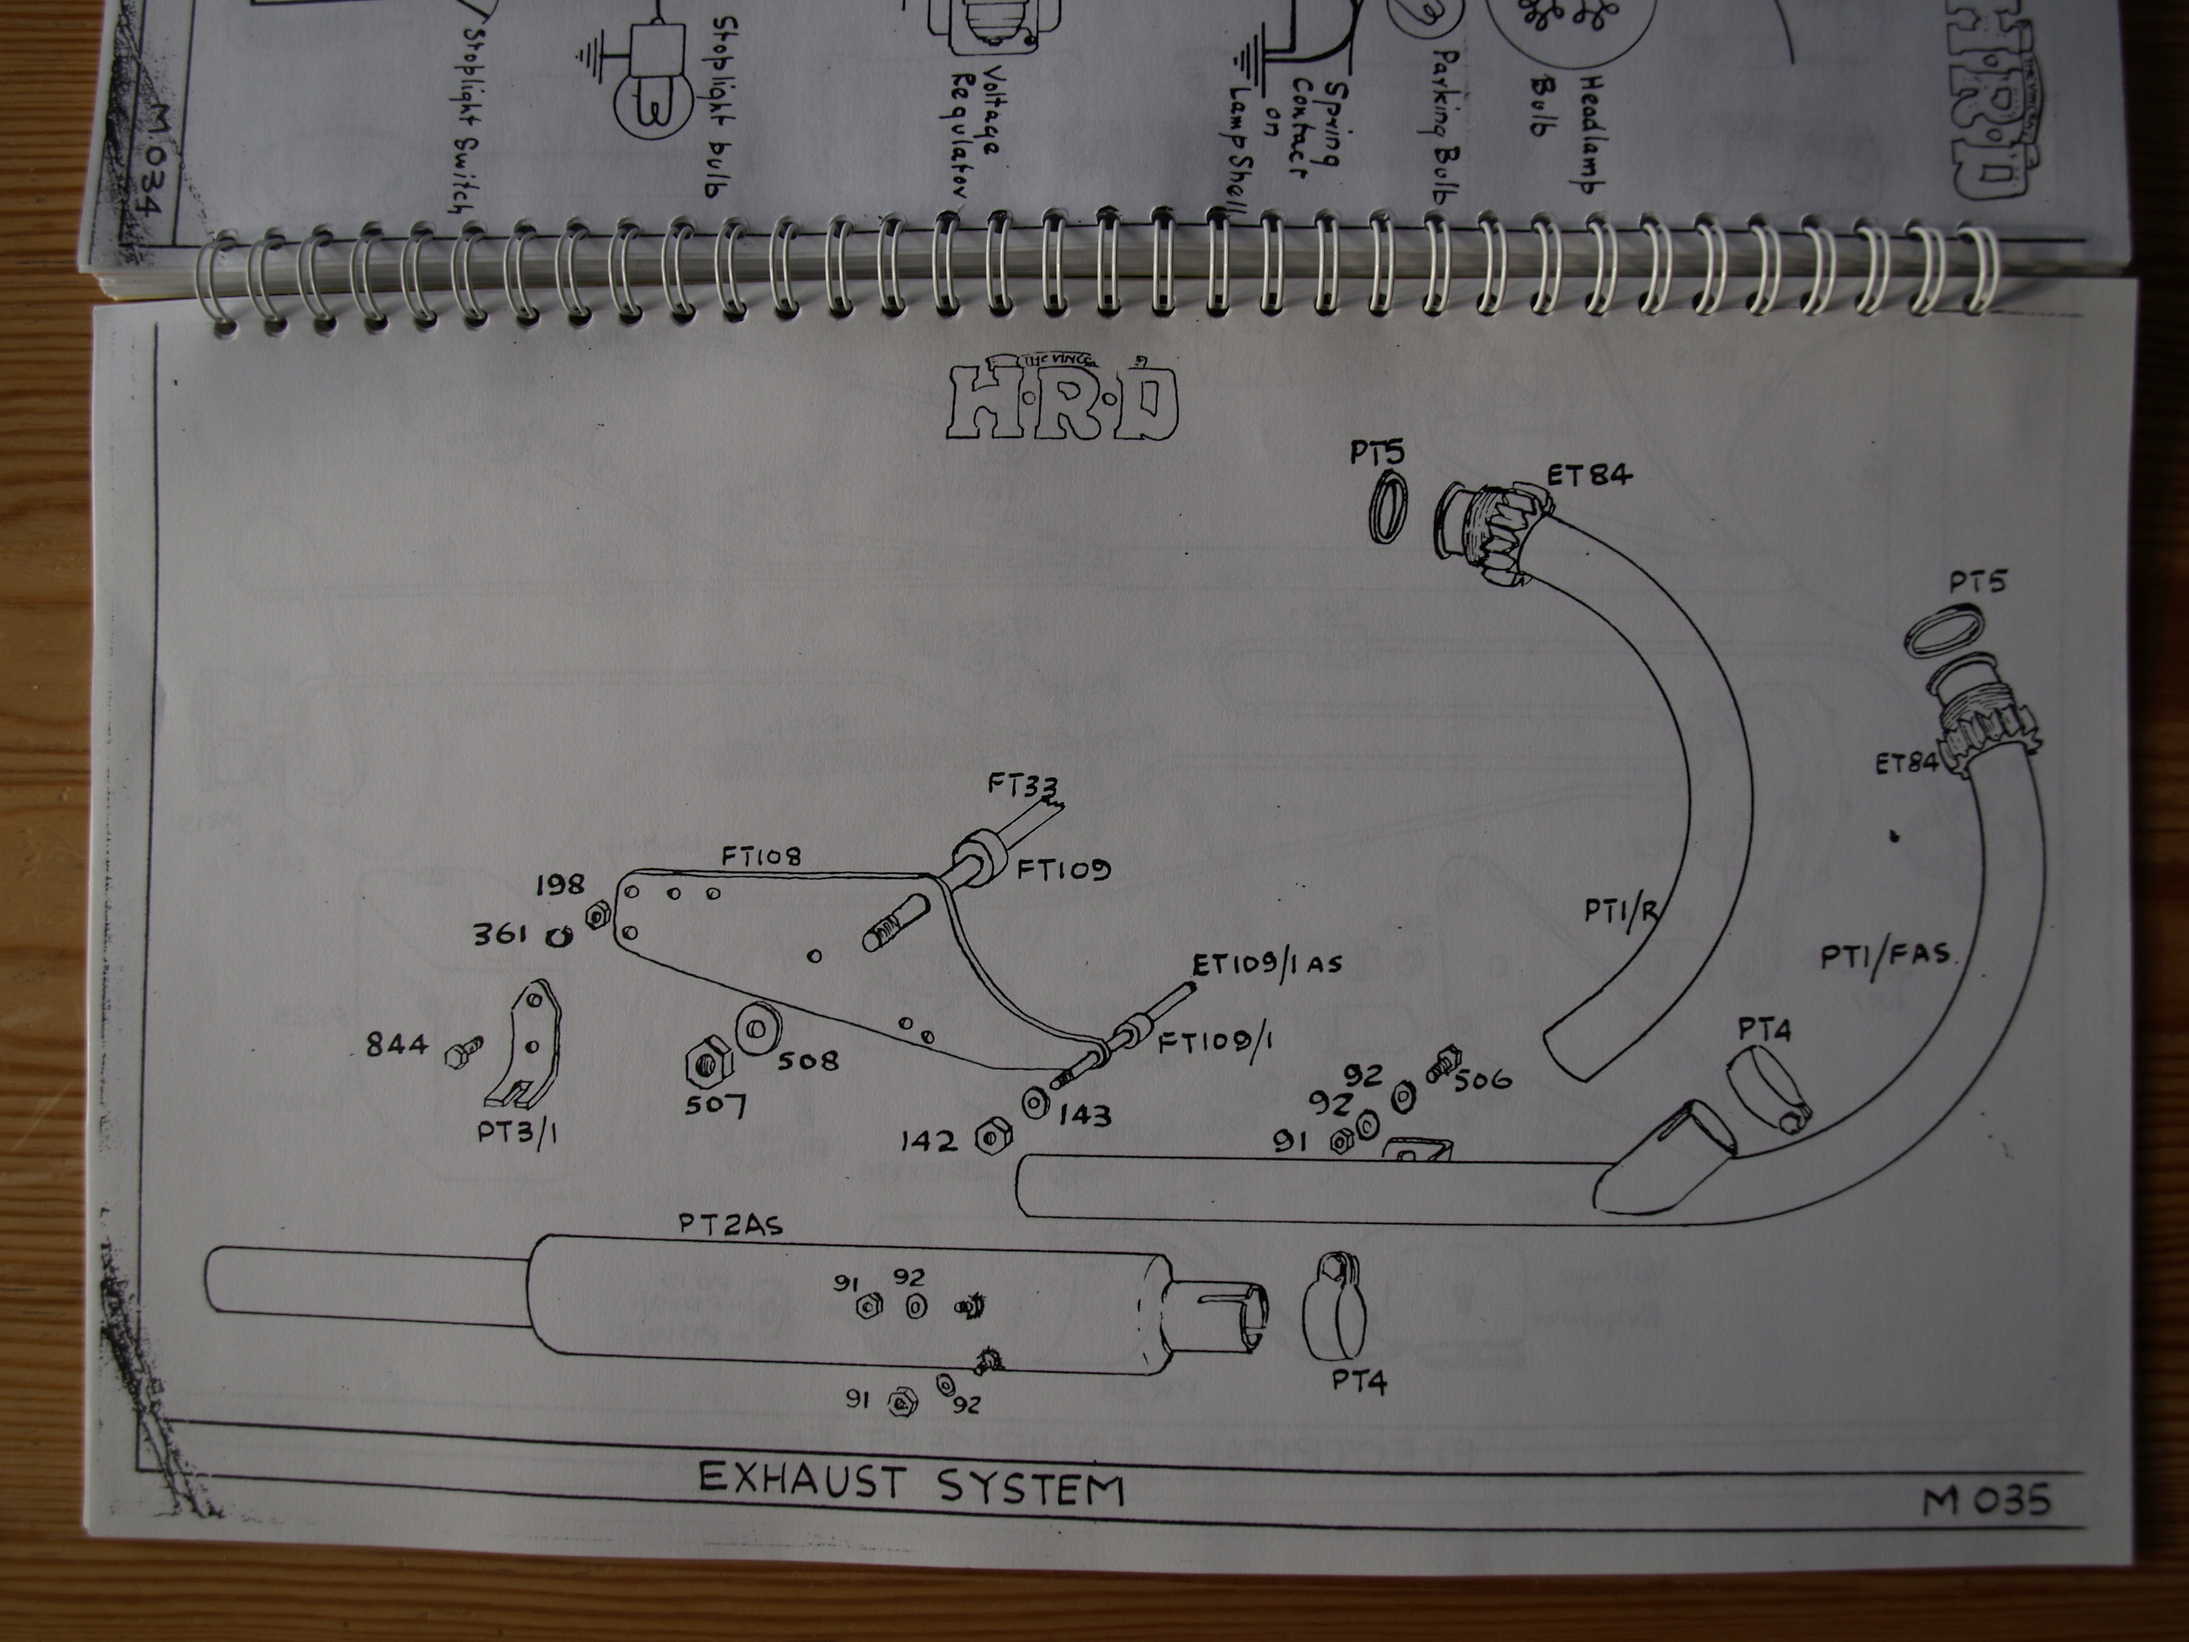 M.034
Stoplight Switch
Stoplight bulb
Voltage
Regulator
Spring
Contact
on
Lamp Shell
Parking Bulb
Headlamp
Bulb
H·R·D
THE VINC
H·R·D
PT5
ET84
PT5
ET84
FT33
FT108
FT109
198
361
PT1/R
PT1/FAS.
ET109/1 AS
FT109/1
844
508
507
PT3/1
143
142
PT4
92
506
92
91
PT2AS
91
92
PT4
91
92
EXHAUST SYSTEM
M 035